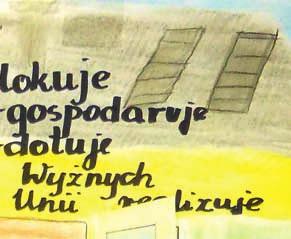 lokuje
-gospodaruje
-dotuje
Wyżnych
Unii realizuje